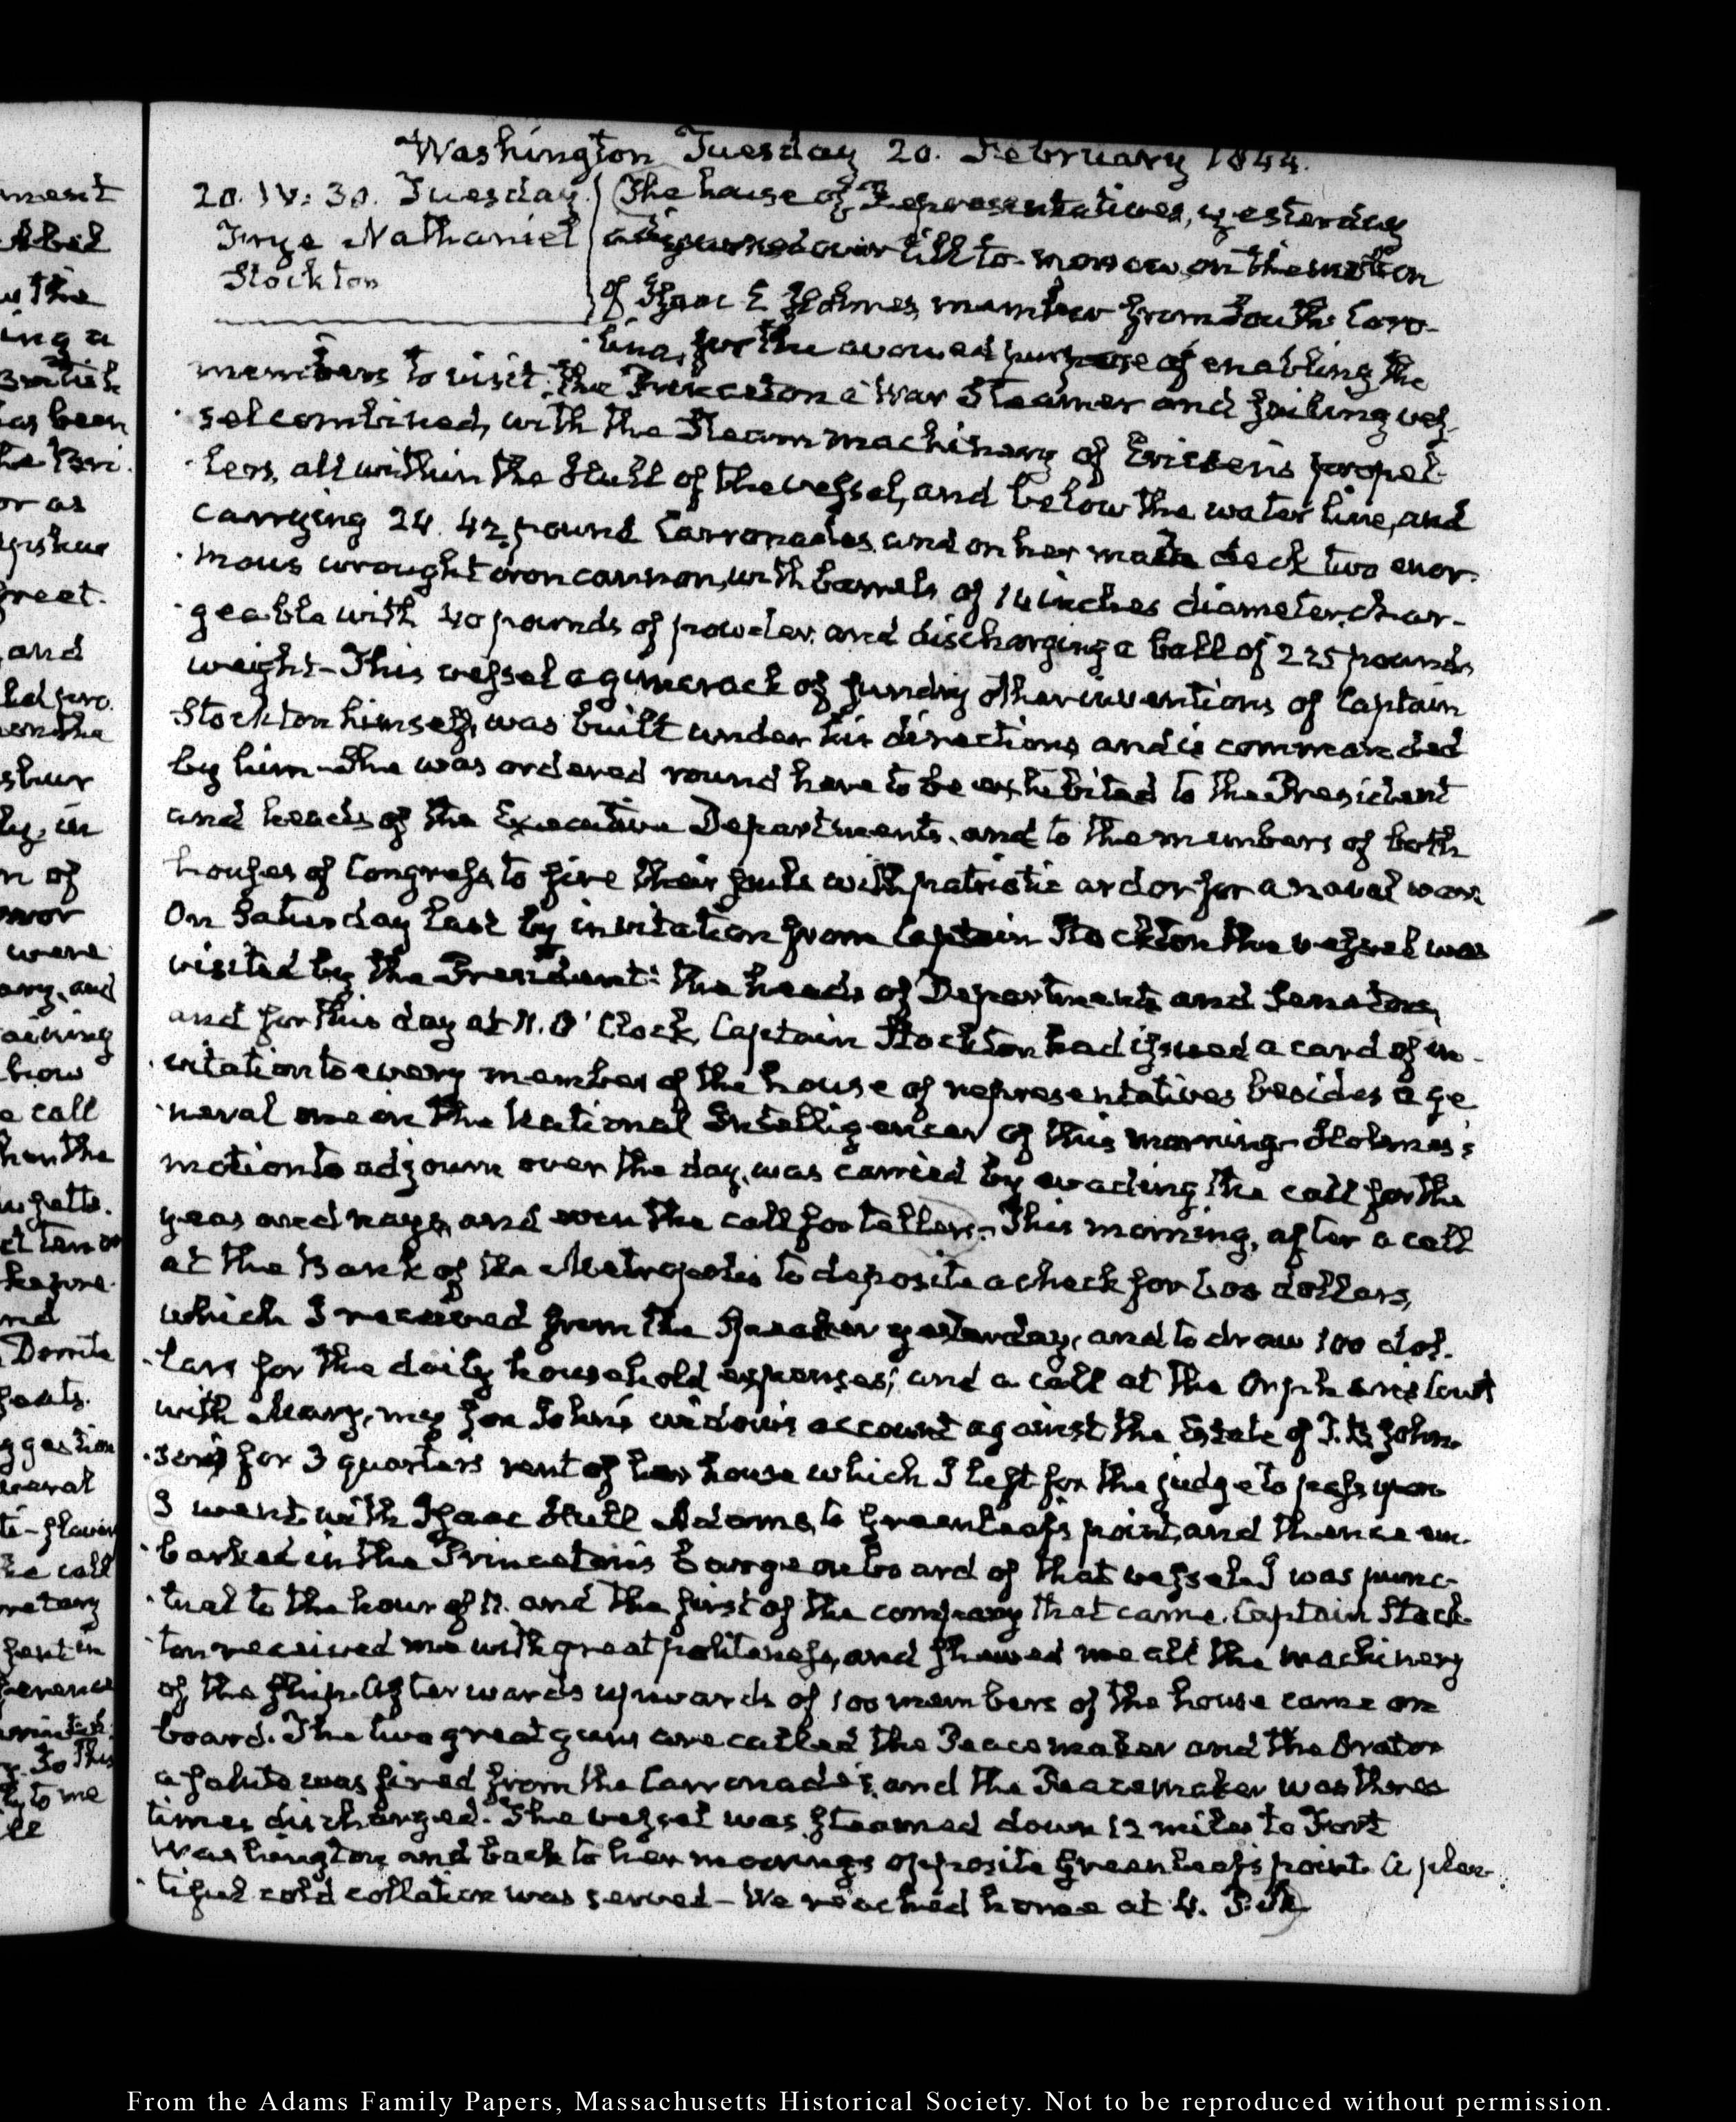 Washington Tuesday 20. February 1844.
20. IV: 30. Tuesday.
Frye Nathaniel
Stockton
The house of Representatives, yesterday
adjourned over till to-morrow on the motion
of Isaac E Holmes, member from South Caro-
lina, for the avowed purpose of enabling the
members to visit the Princeton a War Steamer and Sailing ves-
sel combined, with the Steam machinery of Ericson's propel-
lers, all within the Hull of the vessel, and below the water line, and
carrying 24. 42 pound Carronades and on her main deck two enor-
mous wrought iron cannon, with barrels of 14 inches diameter, char-
geable with 40 pounds of powder, and discharging a ball of 225 pounds
weight – This vessel a gimcrack of sundry other inventions of Captain
Stockton himself, was built under his directions and is commanded
by him – She was ordered round here to be exhibited to the President
and heads of the Executive Departments, and to the members of both
houses of Congress, to fire their souls with patriotic ardor for a naval war.
On Saturday last by invitation from Captain Stockton the vessel was
visited by the President: the heads of Departments and Senators,
and for this day at 11. O'Clock, Captain Stockton had issued a card of in-
vitation to every member of the house of representatives besides a ge
neral one in the National Intelligencer of this morning – Holmes's
motion to adjourn over the day, was carried by evading the call for the
yeas and nays, and even the call for tellers – This morning, after a call
at the Bank of the Metropolis to deposite a check for dollars,
which I received from the Speaker yesterday, and to draw 100 dol-
lars for the daily household expenses; and a call at the Orphan's Court
with Mary, my Son John's widow's account against the Estate of John-
son's for 3 quarters rent of her house which I left for the judge to pass upon
I went with Isaac Hull Adams, to Greenleaf's point, and thence em-
barked in the Princeton's barge on board of that vessel. I was punc-
tual to the hour of 11. and the first of the company that came. Captain Stock-
ton received me with great politeness, and showed me all the machinery
of the ship. Afterwards upwards of 100 members of the house came on
board. The two great guns are called the Peacemaker and the Orator
a salute was fired from the Carronades, and the Peacemaker was three
times discharged. The vessel was steamed down 12 miles to Fort
Washington, and back to her moorings opposite Greenleaf's point. A plen-
tiful cold collation was served – We reached home at 4. P.M.
From the Adams Family Papers, Massachusetts Historical Society. Not to be reproduced without permission.